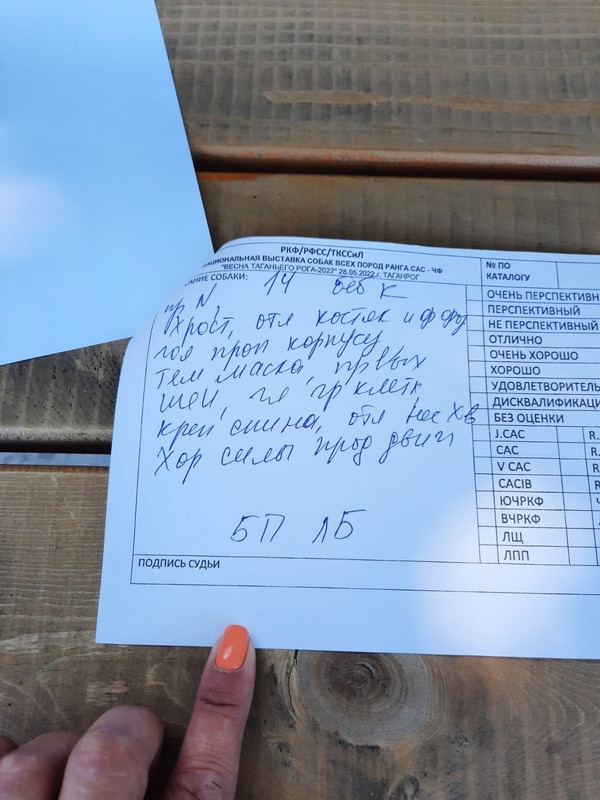 РКФ/РФСС/ТКССиЛ
НАЦИОНАЛЬНАЯ ВЫСТАВКА СОБАК ВСЕХ ПОРОД РАНГА САС - ЧФ
"ВЕСНА ТАГАНЬЕГО РОГА-2022" 28.05.2022 г. ТАГАНРОГ
САНИЕ СОБАКИ:
№ ПО
КАТАЛОГУ
пр N 14 беб К
Хрост, отл костяк и ф
гол проп корпусу
тем маска,
шеи, гл, гр клетк
креп спина, отл пос хв
Хор силы прод движ
БП ЛБ
ОЧЕНЬ ПЕРСПЕКТИВН
ПЕРСПЕКТИВНЫЙ
НЕ ПЕРСПЕКТИВНЫЙ
ОТЛИЧНО
ОЧЕНЬ ХОРОШО
ХОРОШО
УДОВЛЕТВОРИТЕЛЬ
ДИСКВАЛИФИКАЦИ
БЕЗ ОЦЕНКИ
J.CAC R.
CAC R.
V CAC R
CACIB R
ЮЧРКФ
ВЧРКФ
ЛЩ
ЛПП
ПОДПИСЬ СУДЬИ